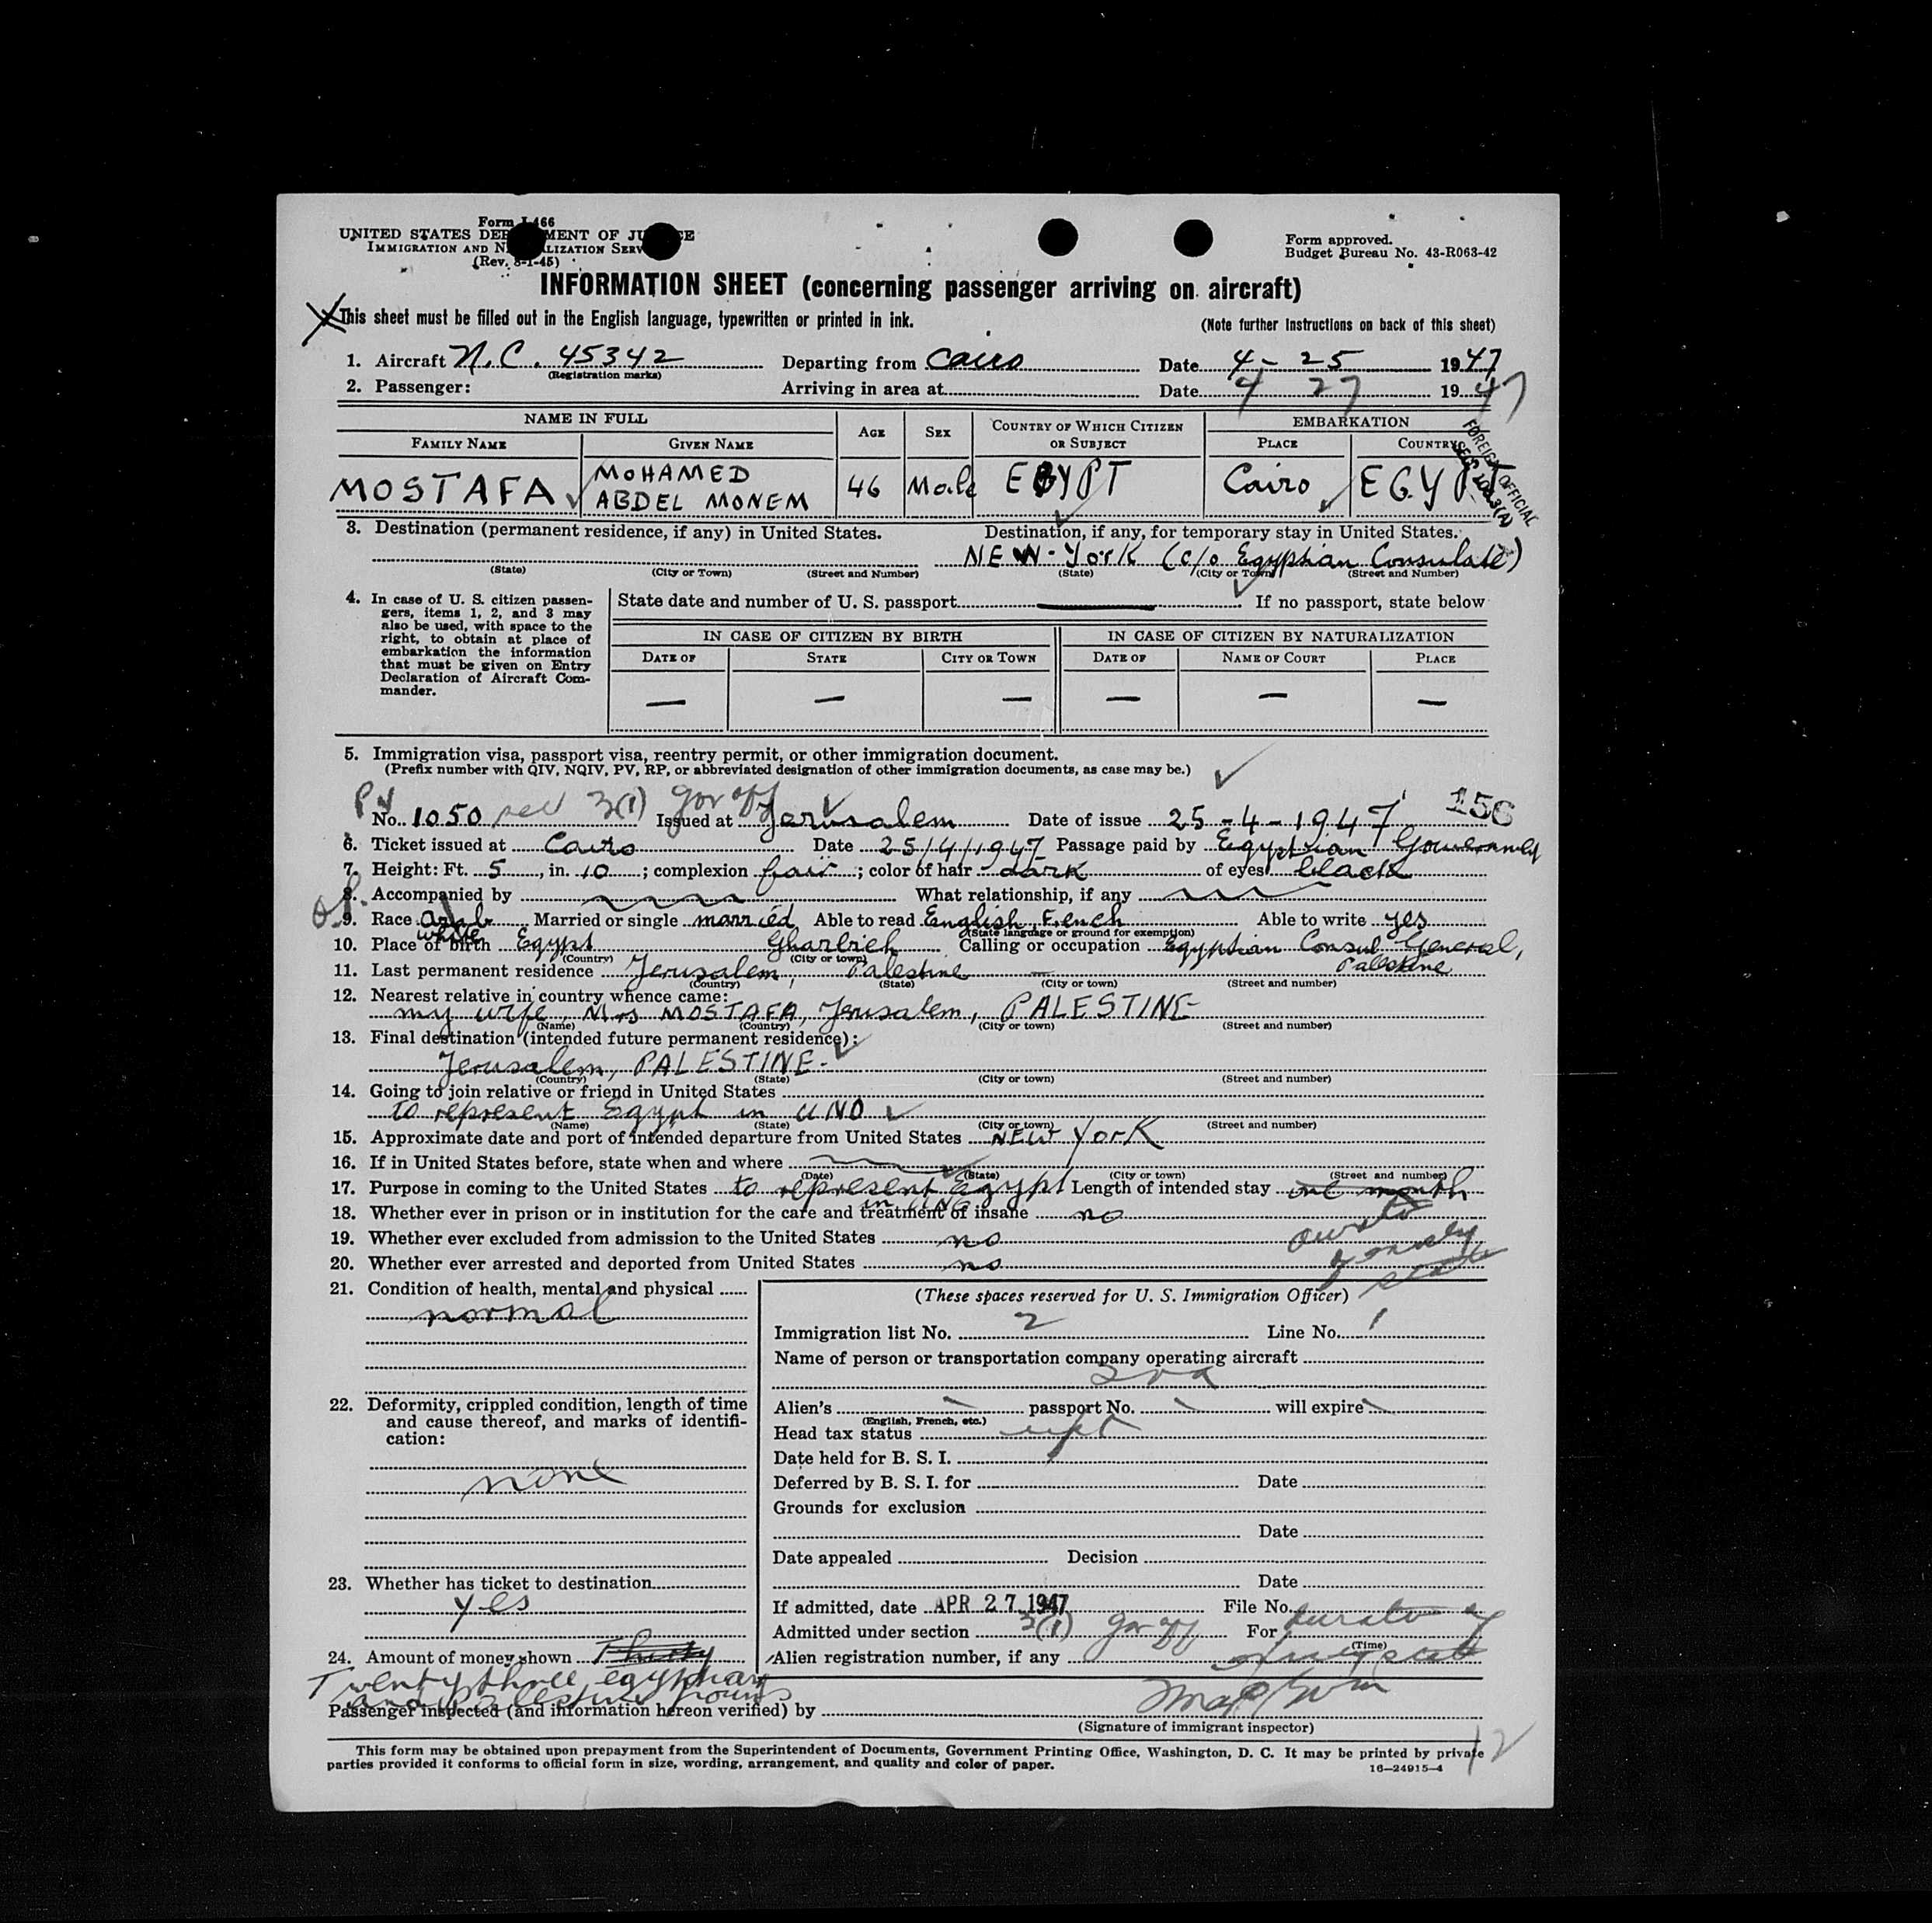 Form I-466
UNITED STATES DEPARTMENT OF JUSTICE
IMMIGRATION AND NATURALIZATION SERVICE
(Rev. 8-1-45)
Form approved.
Budget Bureau No. 43-R063-42
INFORMATION SHEET (concerning passenger arriving on aircraft)
This sheet must be filled out in the English language, typewritten or printed in ink.
(Note further instructions on back of this sheet)
1. Aircraft N.C. 45342 Departing from Cairo Date 4-25 1947
(Registration marks)
2. Passenger: Arriving in area at Date 4 27 1947
NAME IN FULL AGE SEX COUNTRY OF WHICH CITIZEN OR SUBJECT EMBARKATION
FAMILY NAME GIVEN NAME PLACE COUNTRY
MOSTAFA MOHAMED ABDEL MONEM 46 Male EGYPT Cairo EGYPT
FOREIGN OFFICIAL
3. Destination (permanent residence, if any) in United States. Destination, if any, for temporary stay in United States.
NEW-York (c/o Egyptian Consulate)
(State) (City or Town) (Street and Number) (State) (City or Town) (Street and Number)
4. In case of U. S. citizen passengers, items 1, 2, and 3 may
also be used, with space to the
right, to obtain at place of
embarkation the information
that must be given on Entry
Declaration of Aircraft Commander.
State date and number of U. S. passport If no passport, state below
IN CASE OF CITIZEN BY BIRTH IN CASE OF CITIZEN BY NATURALIZATION
DATE OF STATE CITY OR TOWN DATE OF NAME OF COURT PLACE
— — — — — —
5. Immigration visa, passport visa, reentry permit, or other immigration document.
(Prefix number with QIV, NQIV, PV, RP, or abbreviated designation of other immigration documents, as case may be.)
PV No. 1050 3(1) gov off Issued at Jerusalem Date of issue 25-4-1947 156
6. Ticket issued at Cairo Date 25/4/1947 Passage paid by Egyptian Gouvernment
7. Height: Ft. 5, in. 10; complexion fair; color of hair dark of eyes black
8. Accompanied by What relationship, if any
9. Race arab Married or single married Able to read English, French Able to write yes
white (State language or ground for exemption)
10. Place of birth Egypt Gharbieh Calling or occupation Egyptian Consul General,
(Country) (City or town) Palestine
11. Last permanent residence Jerusalem, Palestine —
(Country) (State) (City or town) (Street and number)
12. Nearest relative in country whence came:
my wife, Mrs MOSTAFA, Jerusalem, PALESTINE
(Name) (Country) (City or town) (Street and number)
13. Final destination (intended future permanent residence):
Jerusalem, PALESTINE-
(Country) (State) (City or town) (Street and number)
14. Going to join relative or friend in United States
to represent Egypt in UNO
(Name) (State) (City or town) (Street and number)
15. Approximate date and port of intended departure from United States NEW York
16. If in United States before, state when and where
(Date) (State) (City or town) (Street and number)
17. Purpose in coming to the United States to represent Egypt Length of intended stay one month
in UNO
18. Whether ever in prison or in institution for the care and treatment of insane no
19. Whether ever excluded from admission to the United States no
20. Whether ever arrested and deported from United States no
21. Condition of health, mental and physical
normal
22. Deformity, crippled condition, length of time
and cause thereof, and marks of identification:
none
23. Whether has ticket to destination
yes
24. Amount of money shown Thirty
Twenty three egyptian
and Palestine pounds
(These spaces reserved for U. S. Immigration Officer)
Immigration list No. 2 Line No. 1
Name of person or transportation company operating aircraft
Alien's passport No. will expire
(English, French, etc.)
Head tax status
Date held for B. S. I.
Deferred by B. S. I. for Date
Grounds for exclusion
Date
Date appealed Decision
Date
If admitted, date APR 27 1947 File No.
Admitted under section 3(1) gov off For
(Time)
Alien registration number, if any
Passenger inspected (and information hereon verified) by
(Signature of immigrant inspector)
12
This form may be obtained upon prepayment from the Superintendent of Documents, Government Printing Office, Washington, D. C. It may be printed by private
parties provided it conforms to official form in size, wording, arrangement, and quality and color of paper.
16—24915-4